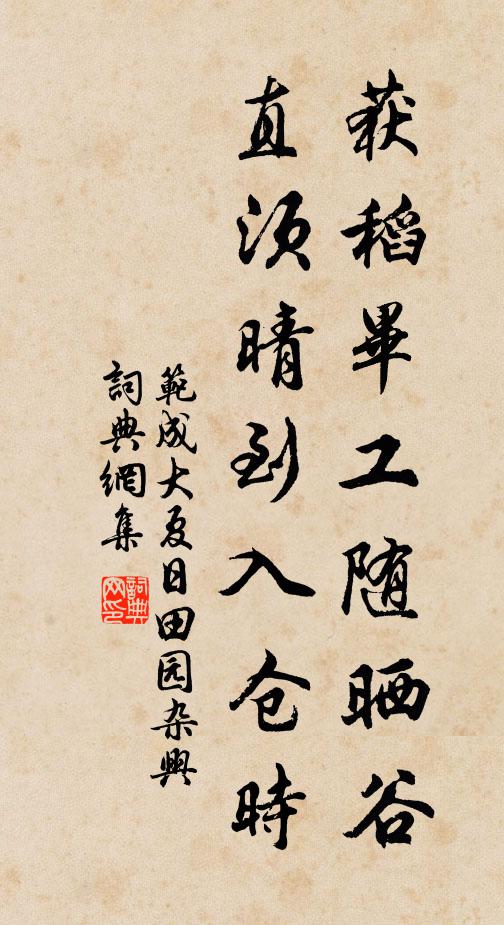 获稻畢工随晒谷
直须晴到入仓時
範成大夏日田园杂興
詞典網集
詞典网印